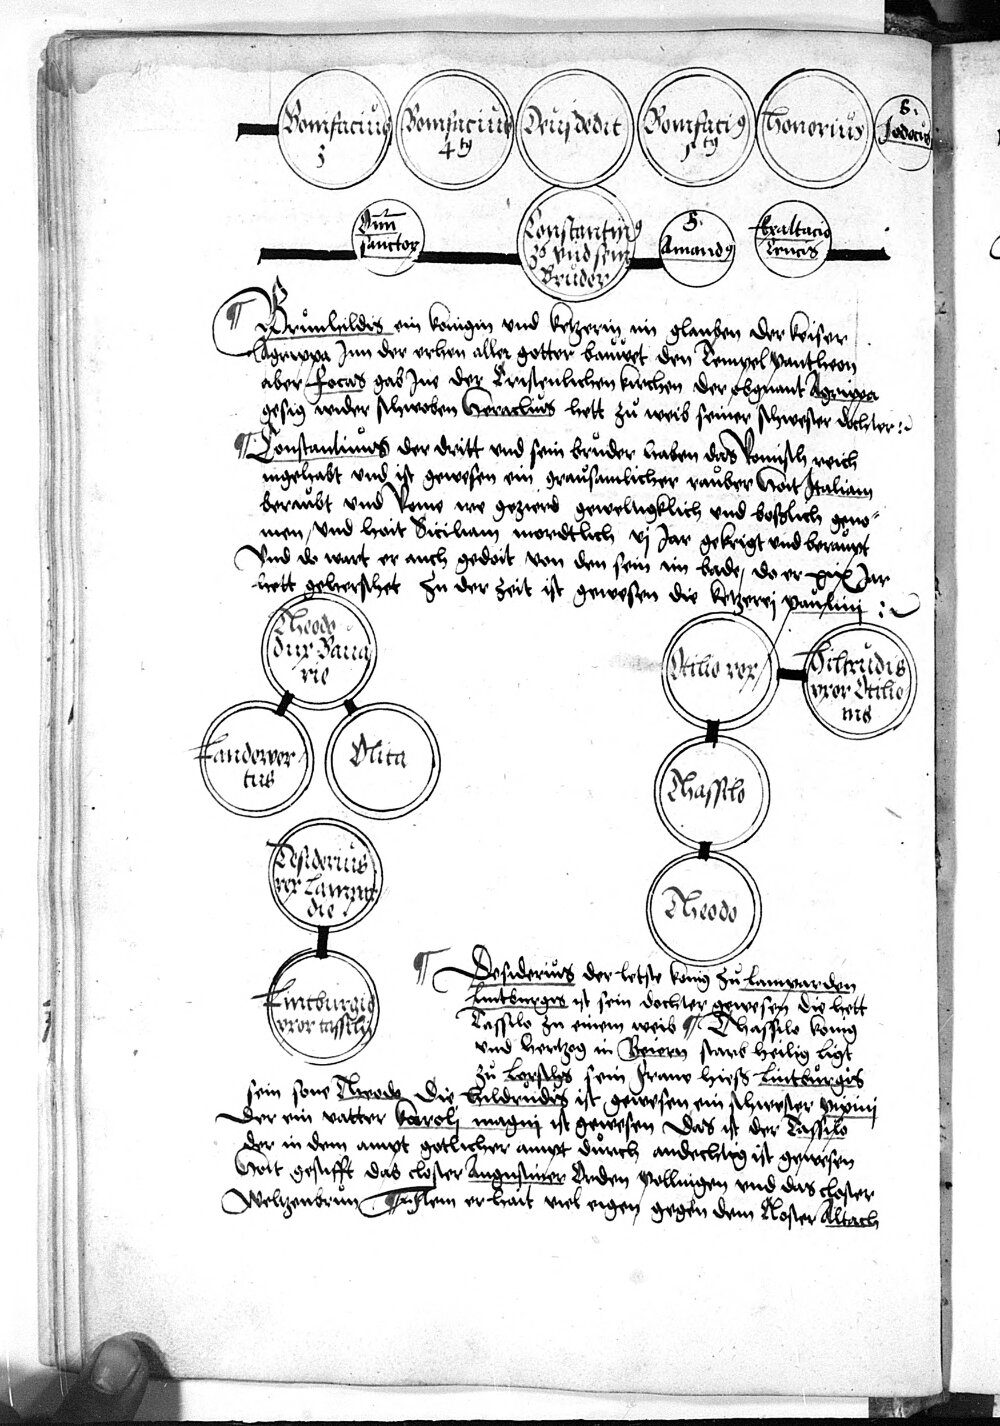 Bonifacius
3
Bonifacius
4 tus
Deusdedit
Bonifacius
5 tus
Honorius
S.
Jodocus
Omnium
sanctor
Constantinus
3s und sein
Bruder
S.
Amandus
Exaltacio
Crucis
¶ Brunhildis ein konigin und ketzerin im glauben der keiser
Agrippa Inn der erhen aller gotter bauwet den Tempel Pantheon
aber Focas gab Ine der Cristenlichen kirchen der obgnant Agrippa
gesig wider schwoben Heraclius hett zu weib seiner schwester dochter
¶ Constantinus der dritt und sein bruder haben das Romisch reich
ingehabt und ist gewesen ein grausamlicher rauber Hoit Italiam
beraubt und Rome ire gezierd geweltigklich und boslich geno-
men, und hoit Siciliam mordtlich vj Jar gekrigt und beraupt
Und do wart er auch gedoit von den sein im bade, do er xxix Jar
hett geherschet Zu der zeit ist gewesen die ketzerej paulini
Theodo
dux Baua
rie
Landower
tus
Olita
Otilio rex
Hiltrudis
vxor Otilio
nis
Thassilo
Theodo
Desiderius
rex Lampar
die
Lintburgis
vxor tassilij
¶ Desiderius der letste konig zu lamparden
Lintburgis ist sein dochter gewesen die hett
Tassilo zu einem weib ¶ Thassilo konig
und hertzog in Beiern starb heilig ligt
zu Lorschs sein frauw hiess Lintburgis
sein sone Theodo Die hildrudis ist gewesen ein schwester pipini
Der ein vatter karolj magnj ist gewesen Das ist der Tassilo
der in dem ampt gotlicher ampt durch andechtig ist gewesen
Hoit gestifft das closter Augustiner Orden pollingen und das closter
Weltzenbrun ¶ Jtem er hait viel eigen gegen dem kloster Altach